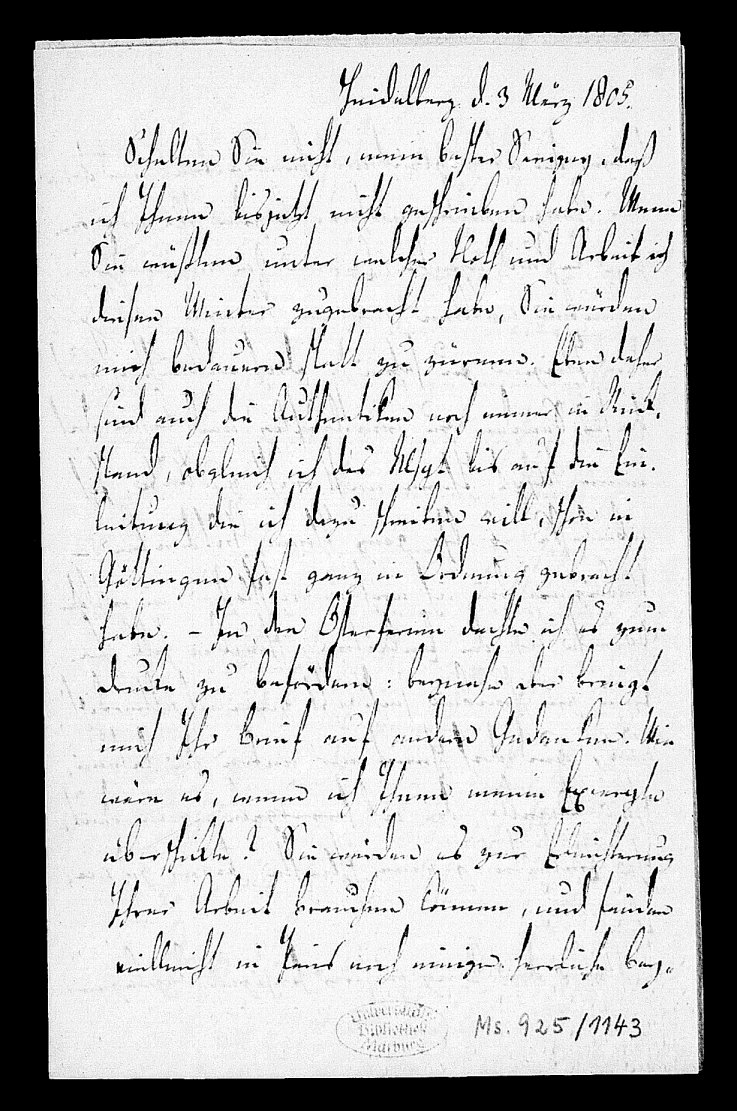 Heidelberg d. 3 März 1805.
Schelten Sie nicht, mein bester Savigny, daß
ich Ihnen bis jetzt nicht geschrieben habe. Wenn
Sie wüßten unter welcher Noth und Arbeit ich
diesen Winter zugebracht habe, Sie würden
mich bedauern statt zu zürnen. Eben daher
sind auch die Authentiken noch immer in Rück-
stand, obgleich ich das Mspt bis auf die Ein-
leitung die ich dazu schreiben will, schon in
Göttingen fast ganz in Ordnung gebracht
habe. – In den Osterferien dachte ich es zum
drucke zu befördern: beynahe aber bringt
mich Ihr Brief auf andere Gedanken. Wie
wäre es, wenn ich Ihnen meine Excerpte
überschickte? Sie würden es zur Erleichterung
Ihrer Arbeit brauchen können, und fänden
vielleicht in Paris noch einige herrliche Bey-
Universitäts-
Bibliothek
Marburg
Ms. 925/1143